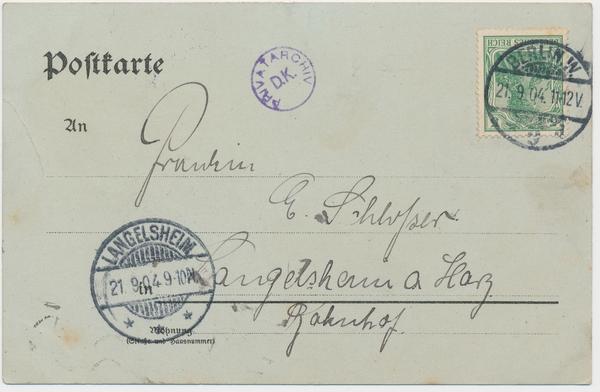 Postkarte
PRIVATARCHIV
D.K.
DEUTSCHES REICH
BERLIN.W.
21.9.04.11-12V.
An
Fräulein
E. Schlosser
LANGELSHEIM
21.9.04.9-10N.
in
Langelsheim a Harz
Bahnhof.
Wohnung
(Straße und Hausnummer)